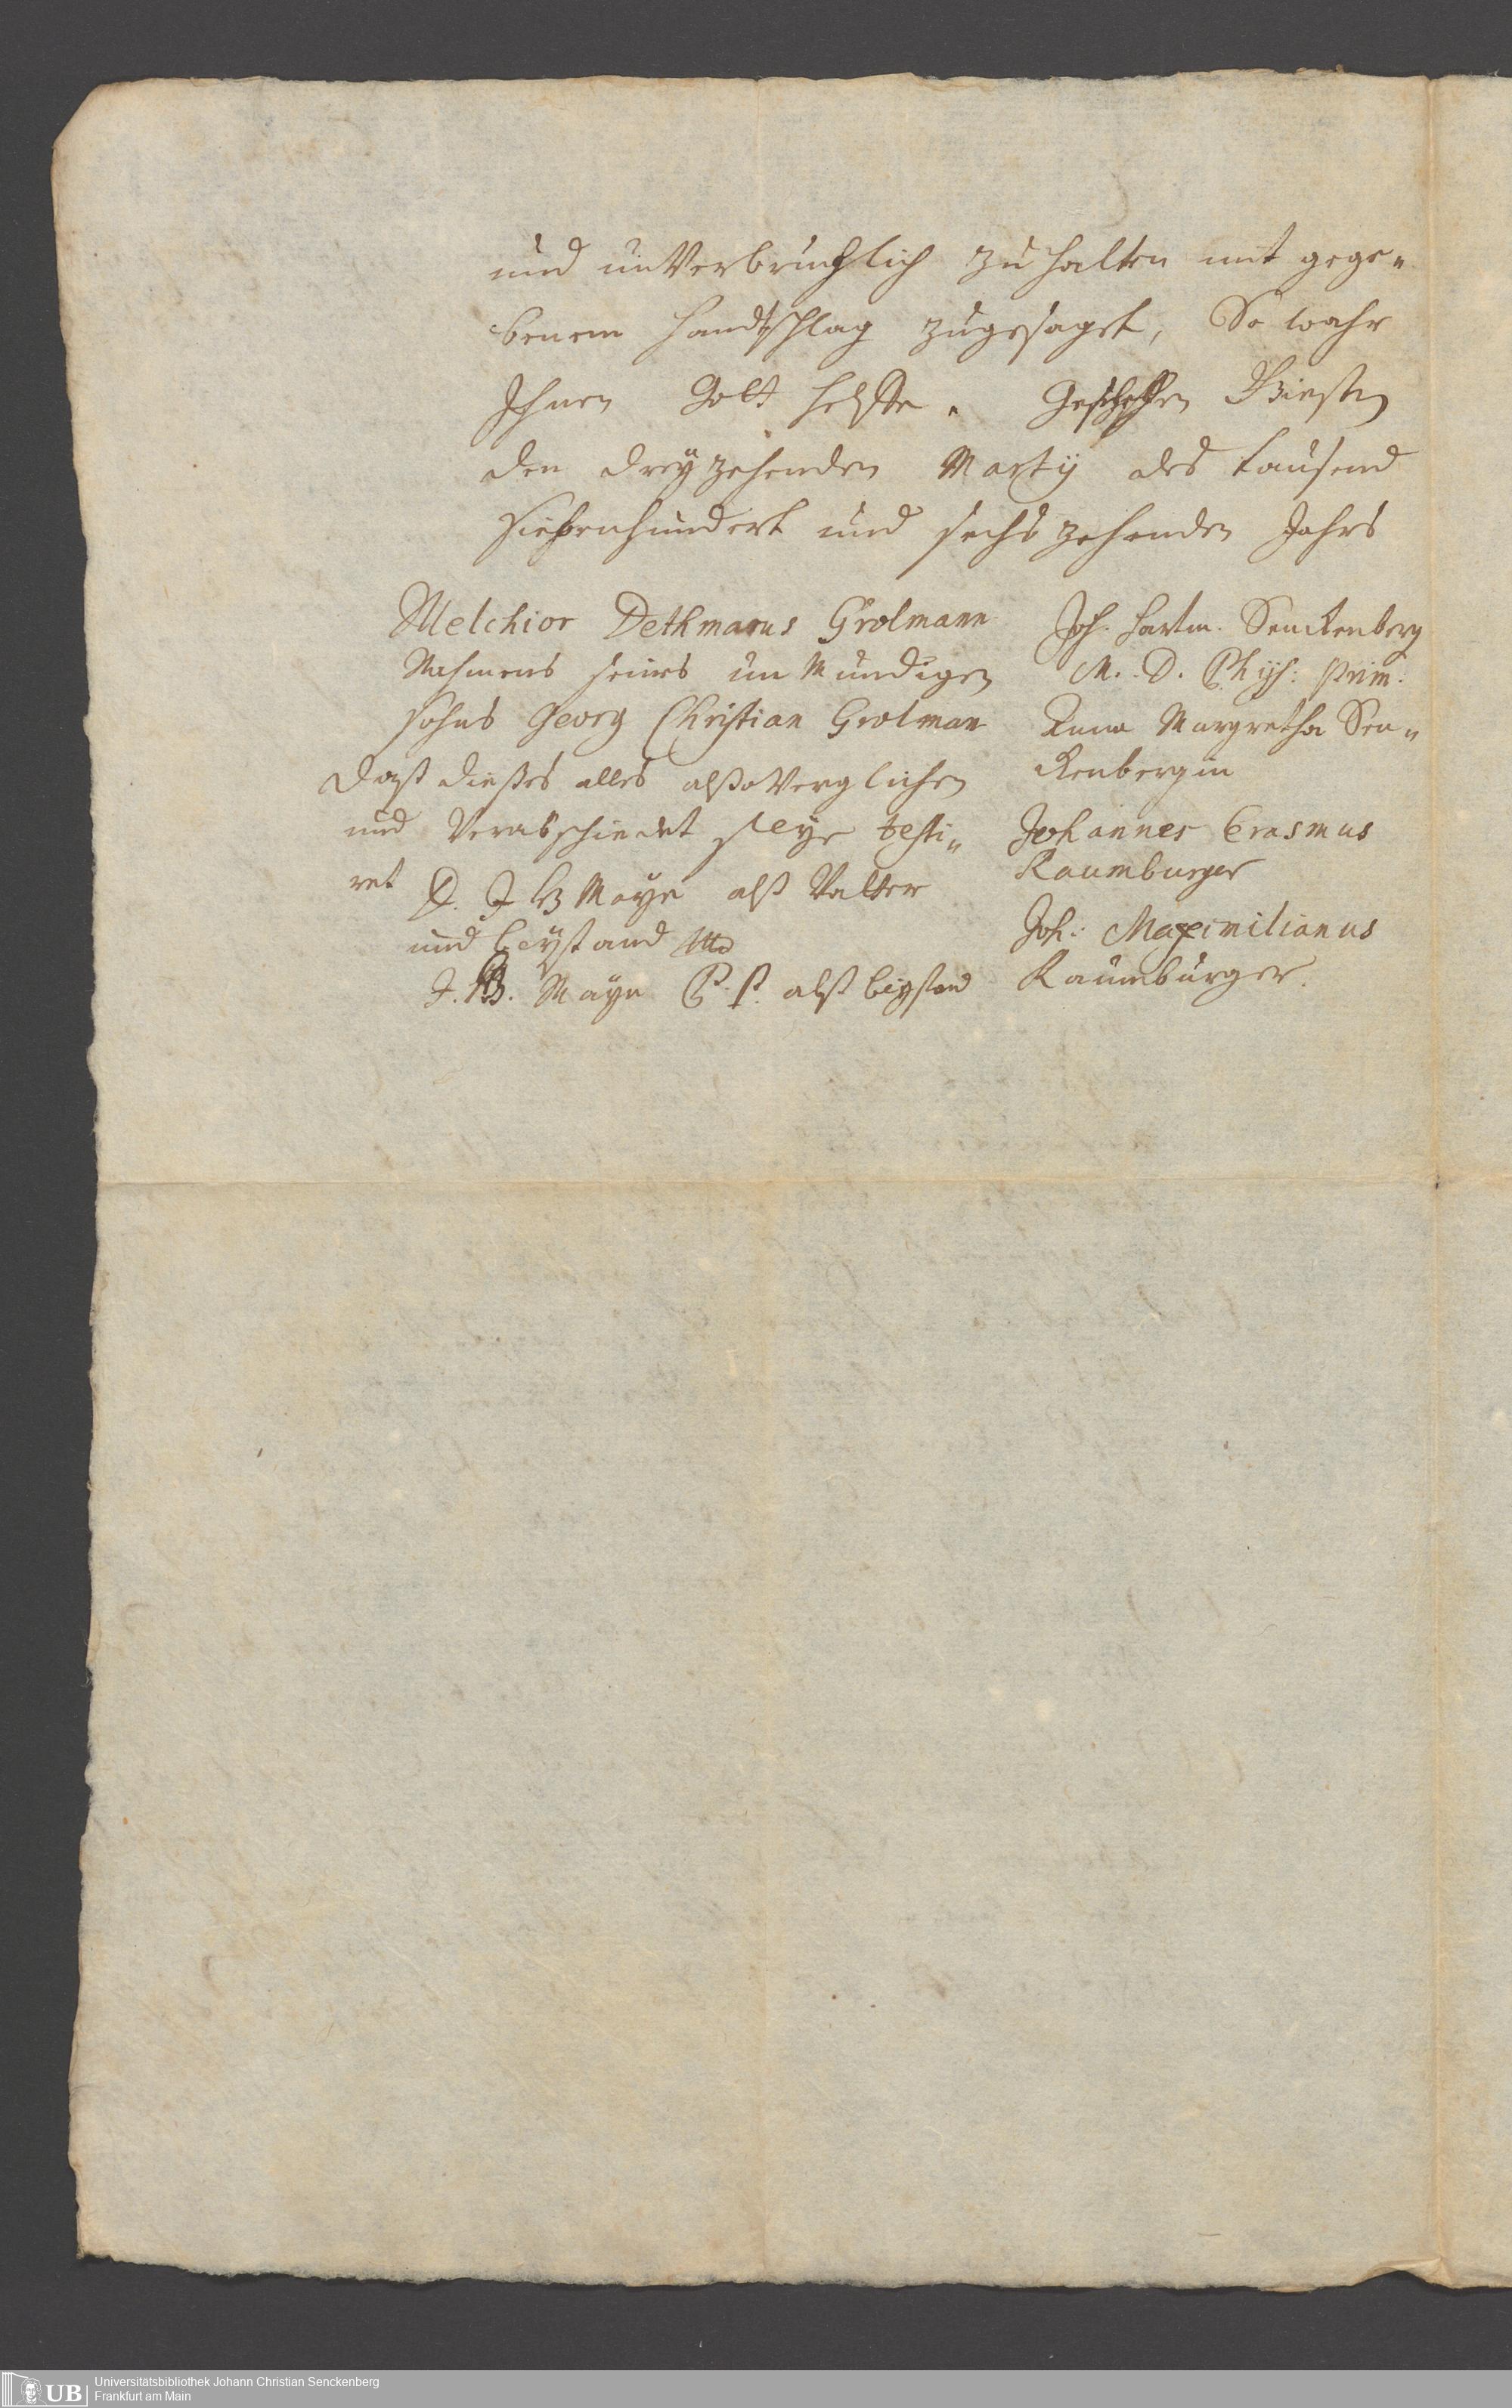 und unVerbruchlich zu halten mit gege„
benem handschlag zugesaget, So wahr
Ihnen Gott helffe. Geschehen Giesen
den dreyzehenden Martij des tausend
siebenhundert und sechszehenden Jahrs
Melchior Dethmarus Grolmann
Nahmens seines unMundigen
sohns Georg Christian Grolman
daß dießes alles alßo Verglichen
und Verabschiedet seye testi„
ret D. J H Maÿe alß Vatter
und beystand
J. H. Maÿe P. P. alß beystand
Joh. Hartm. Senckenberg
M. D. Phys: prim:
Anna Margretha Sen„
ckenbergin
Johannes Erasmus
Raumburger
Joh: Maximilianus
Raumburger.
UB Universitätsbibliothek Johann Christian Senckenberg
Frankfurt am Main